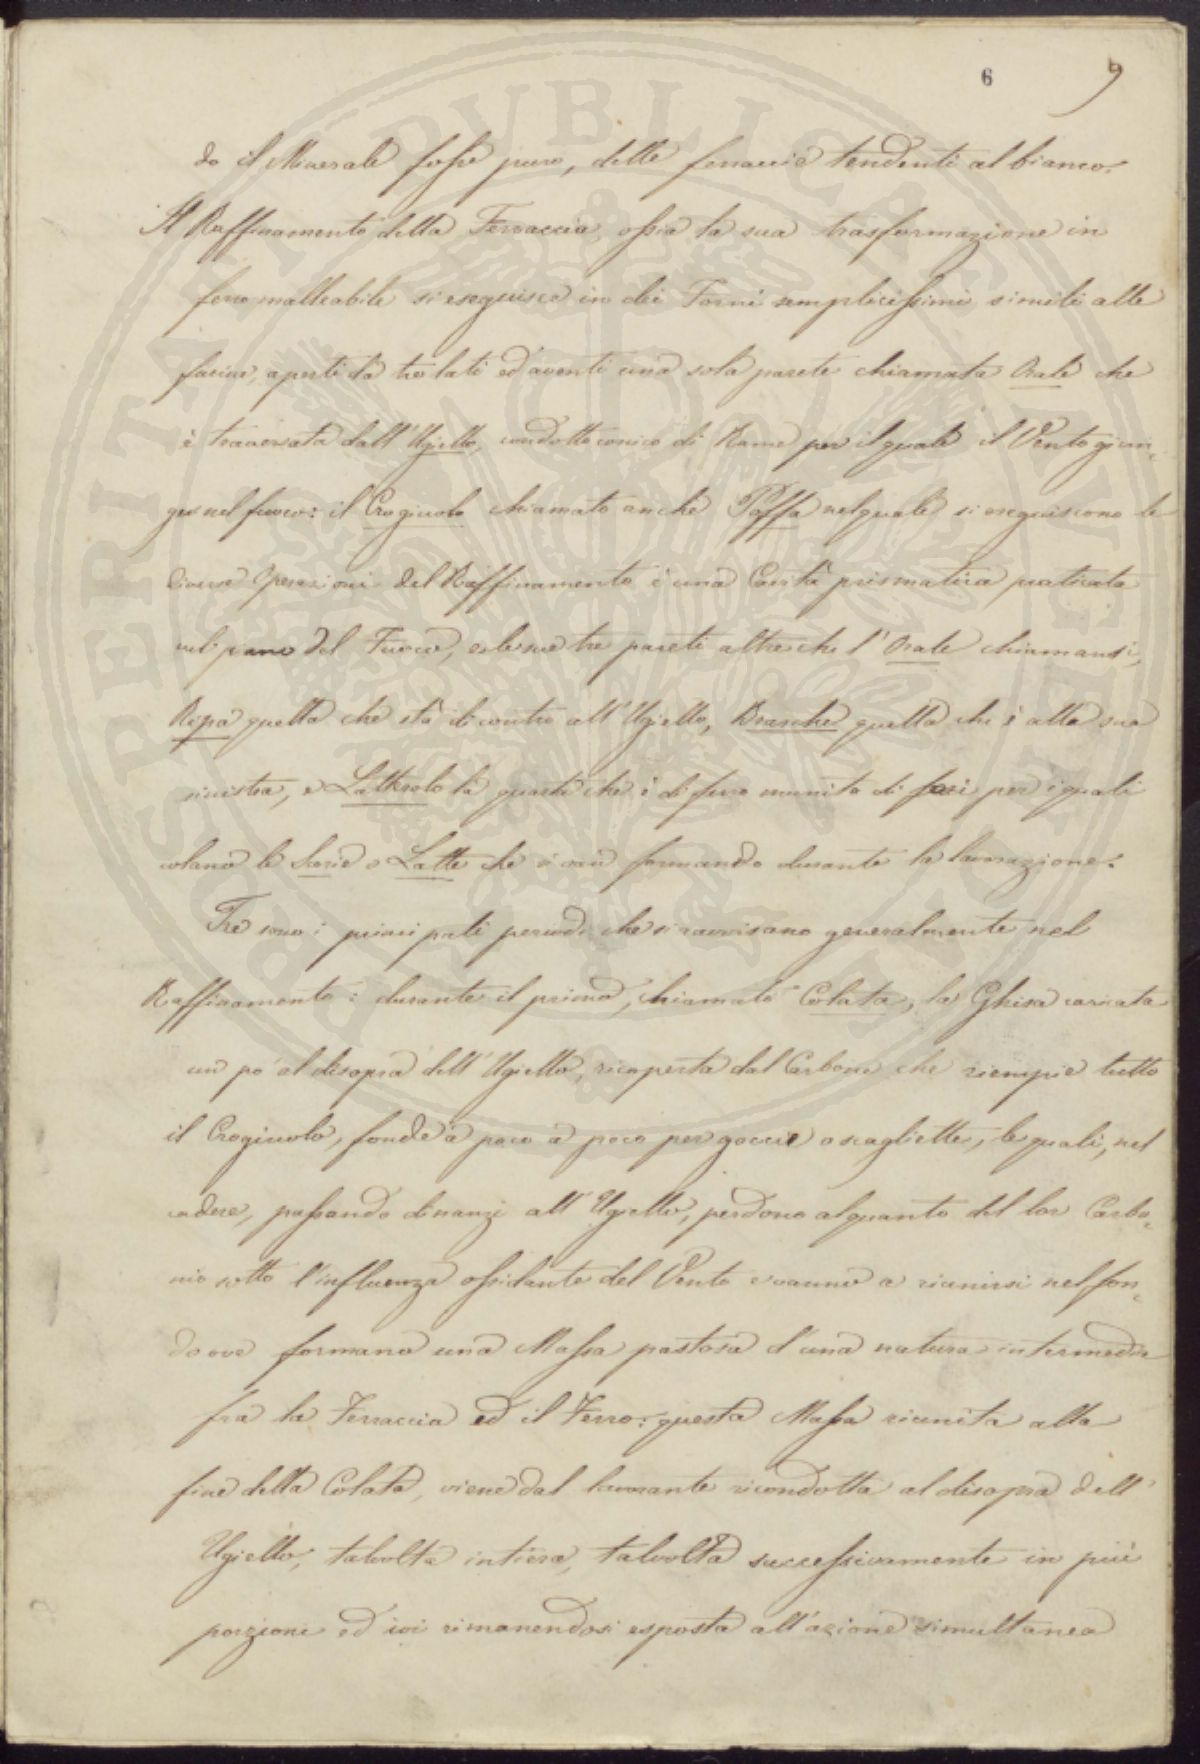 6 9
do il Minerale fosse puro, delle ferraccie tendenti al bianco.
Il Raffinamento della Ferraccia, ossia la sua trasformazione in
ferro malleabile si eseguisce in dei Forni semplicissimi simili alle
fucine, aperti da tre lati ed aventi una sola parete chiamata Orale che
è traversata dall'Ugiello, condotto conico di Rame per il quale il Vento giun-
ge nel fuoco: il Crogiuolo chiamato anche Poffa nel quale si eseguiscono le
diverse Operazioni del Raffinamento è una Cavità prismatica praticata
nel piano del Fuoco, e le sue tre pareti altre che l'Orale chiamansi,
Ripa quella che stà di contro all'Ugiello, Brasche quella che è alla sua
sinistra, e Latterolo la quarta che è di ferro munito di fori per i quali
colano le Scorie o Latte che si van formando durante la lavorazione:
Tre sono i principali periodi che si ravvisano generalmente nel
Raffinamento: durante il primo, chiamato Colata, la Ghisa caricata
un pò al disopra dell'Ugiello, ricoperta dal Carbone che riempie tutto
il Crogiuolo, fonde a poco a poco per goccie o scagliette, le quali, nel
cadere, passando dinanzi all'Ugiello, perdono alquanto del lor Carbo-
nio sotto l'influenza ossidante del Vento e vanno a riunirsi nel fon-
do ove formano una Massa pastosa d'una natura intermedia
fra la Ferraccia ed il Ferro: questa Massa riunita alla
fine della Colata, viene dal lavorante ricondotta al disopra dell'
Ugiello, talvolta intiera, talvolta successivamente in più
porzioni ed ivi rimanendosi esposta all'azione simultanea
PERITALE PUBLICAE